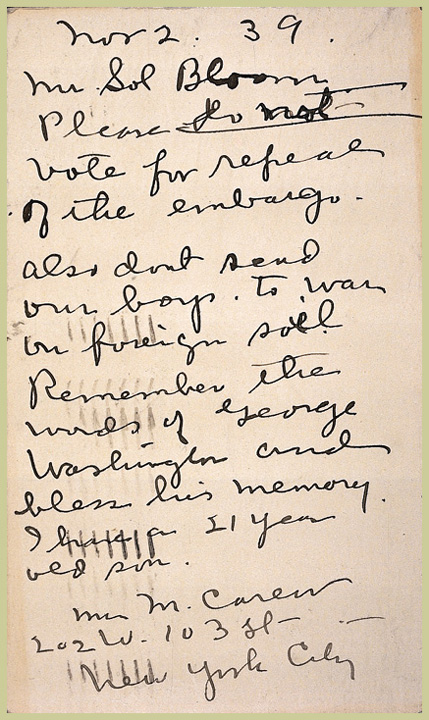 Nov 2. 39.
Mr. Sol Bloom
Please do not
vote for repeal
of the embargo.
also dont send
our boys. to war
on foreign soil
Remember the
words of George
Washington and
bless his memory.
I have a 21 year
old son.
Mrs M. Carew
202 W. 103 St
New York City